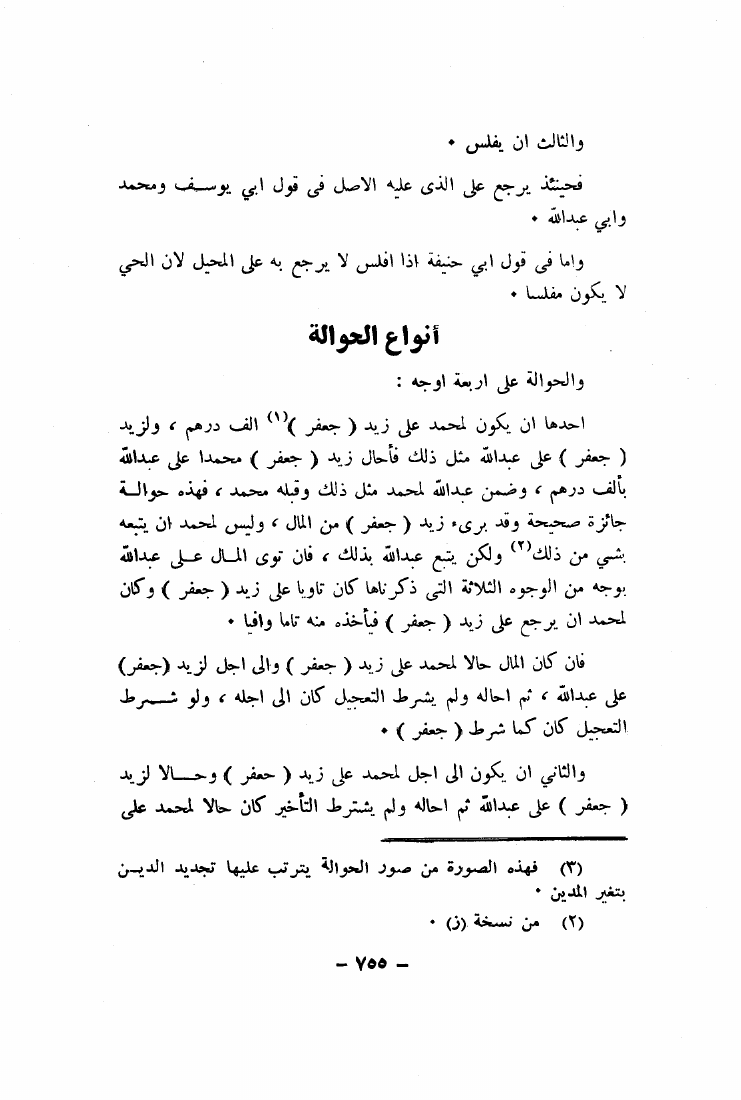 والثالث ان يفلس ٠
فحينئذ يرجع على الذى عليه الاصل فى قول ابي يوسف ومحمد
وابي عبدالله ٠
واما فى قول ابي حنيفة اذا افلس لا يرجع به على المحيل لان الحي
لا يكون مفلسا ٠
أنواع الحوالة
والحوالة على اربعة اوجه :
احدها ان يكون لمحمد على زيد ( جعفر )(١) الف درهم ، ولزيد
( جعفر ) على عبدالله مثل ذلك فأحال زيد ( جعفر ) محمدا على عبدالله
بألف درهم ، وضمن عبدالله لمحمد مثل ذلك وقبله محمد ، فهذه حوالة
جائزة صحيحة وقد برىء زيد ( جعفر ) من المال ، وليس لمحمد ان يتبعه
بشي من ذلك(٢) ولكن يتبع عبدالله بذلك ، فان توى المال على عبدالله
بوجه من الوجوه الثلاثة التى ذكرناها كان تاويا على زيد ( جعفر ) وكان
لمحمد ان يرجع على زيد ( جعفر ) فيأخذه منه تاما وافيا ٠
فان كان المال حالا لمحمد على زيد ( جعفر ) والى اجل لزيد (جعفر)
على عبدالله ، ثم احاله ولم يشرط التعجيل كان الى اجله ، ولو شرط
التعجيل كان كما شرط ( جعفر ) ٠
والثاني ان يكون الى اجل لمحمد على زيد ( جعفر ) وحالا لزيد
( جعفر ) على عبدالله ثم احاله ولم يشترط التأخير كان حالا لمحمد على
(٣) فهذه الصورة من صور الحوالة يترتب عليها تجديد الدين
بتغير المدين ٠
(٢) من نسخة (ز) ٠
— ٧٥٥ —